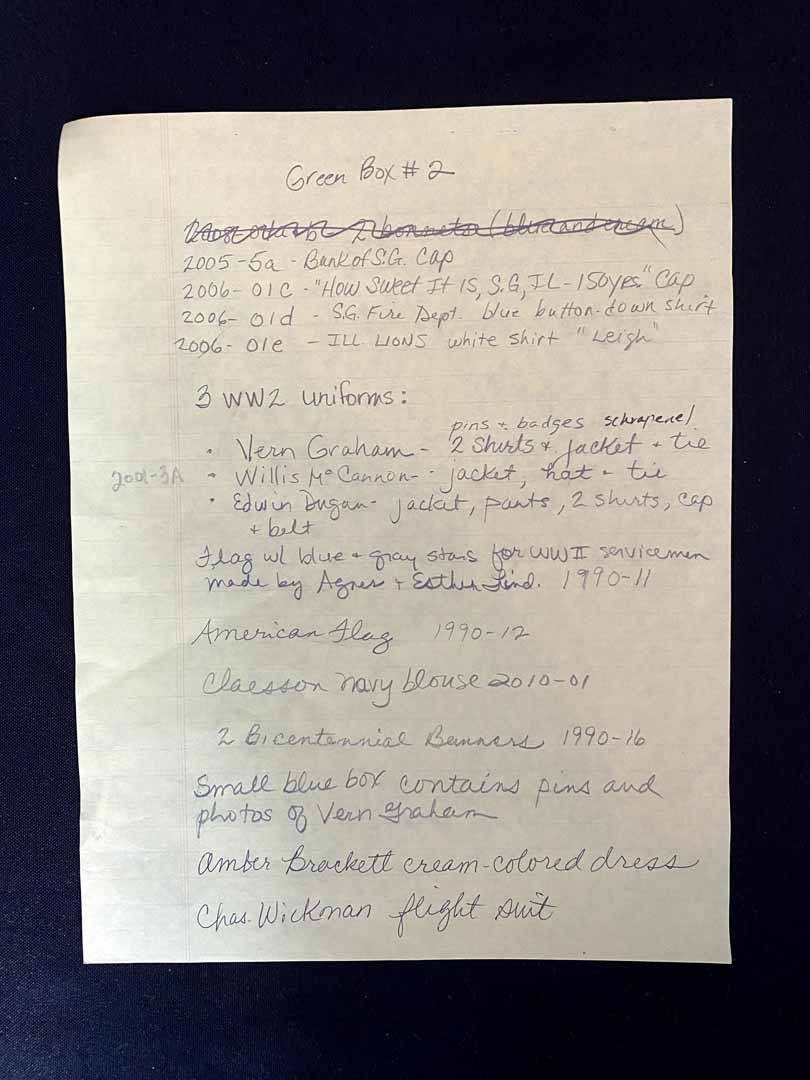 Green Box # 2
2 bonnets (blue and cream)
2005-5a - Bank of S.G. Cap
2006-01c - "How Sweet It Is, S.G, IL - 150yrs." Cap
2006-01d - S.G. Fire Dept. blue button-down shirt
2006-01e - ILL LIONS white shirt "Leigh"
3 WW2 uniforms:
pins + badges schrapenel
• Vern Graham - 2 shirts + jacket + tie
2001-3A • Willis McCannon - jacket, hat + tie
• Edwin Dugan - jacket, pants, 2 shirts, cap
+ belt
Flag w/ blue + gray stars for WWII servicemen
made by Agnes + Esther Lind. 1990-11
American Flag 1990-12
Claesson navy blouse 2010-01
2 Bicentennial Banners 1990-16
Small blue box contains pins and
photos of Vern Graham
Amber Brackett cream-colored dress
Chas. Wickman flight suit